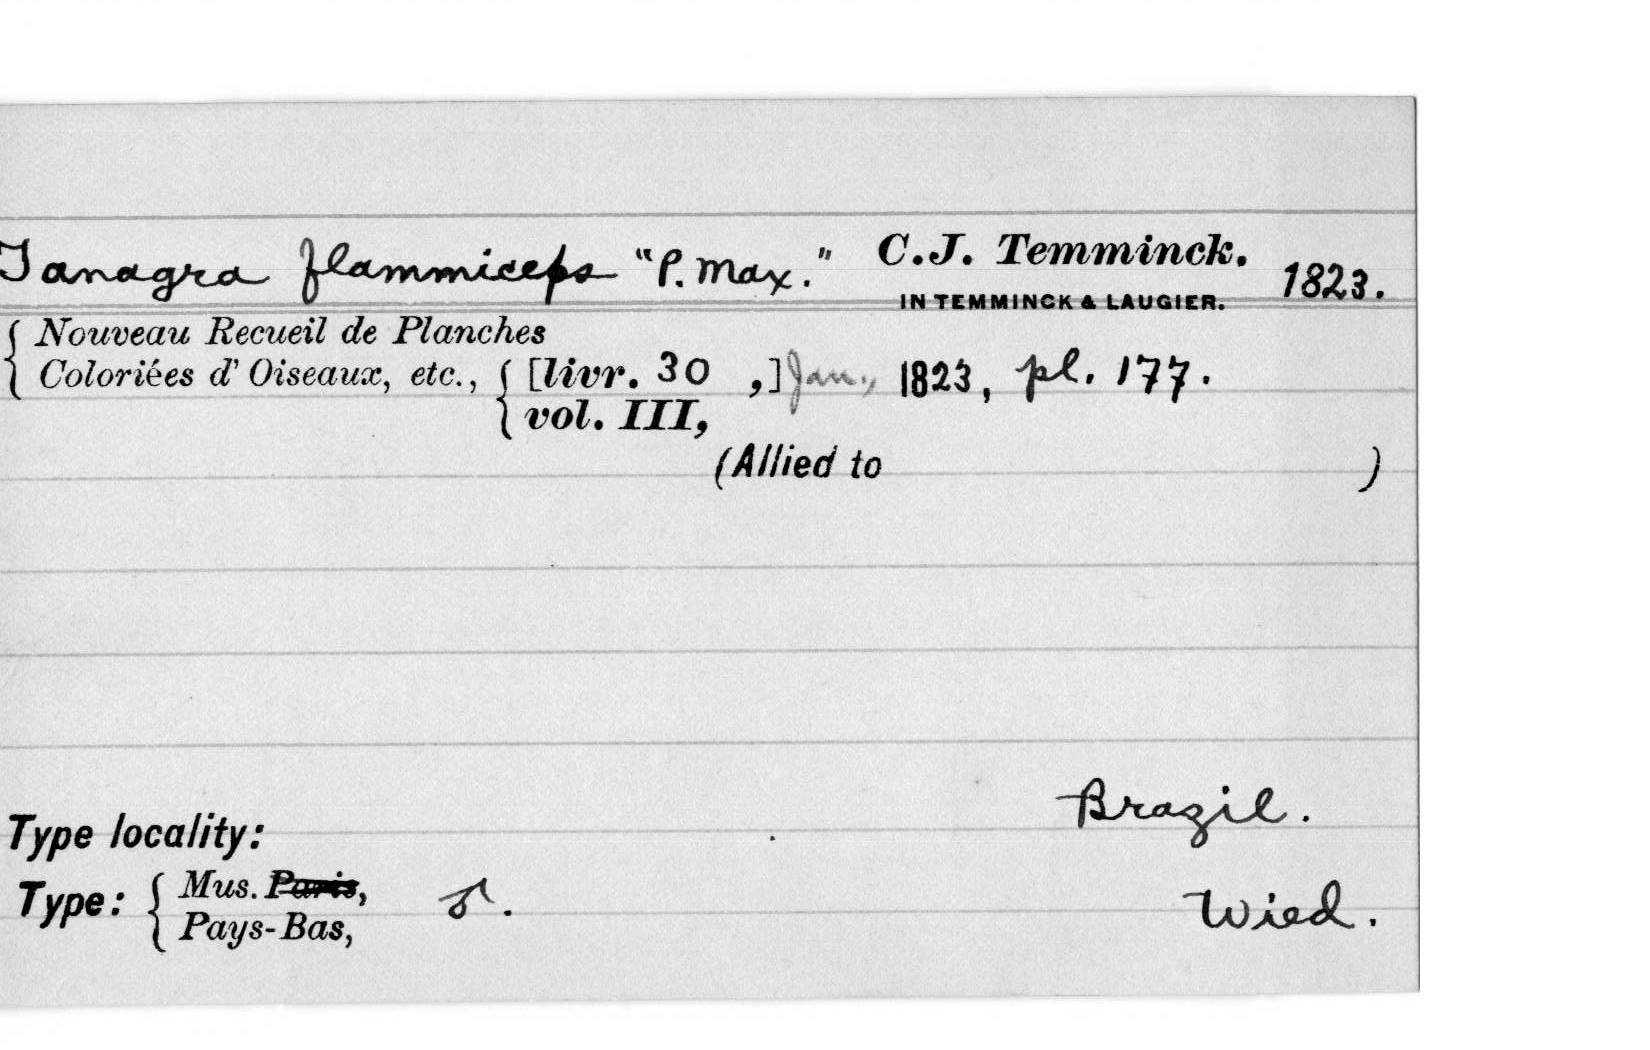 Tanagra flammiceps "P. Max." C.J. Temminck. 1823.
IN TEMMINCK & LAUGIER.
Nouveau Recueil de Planches
Coloriées d' Oiseaux, etc., [livr. 30 ,] Jan., 1823, pl. 177.
vol. III,
(Allied to )
Brazil.
Type locality:
Type: Mus. Paris, ♂. Wied.
Pays-Bas,